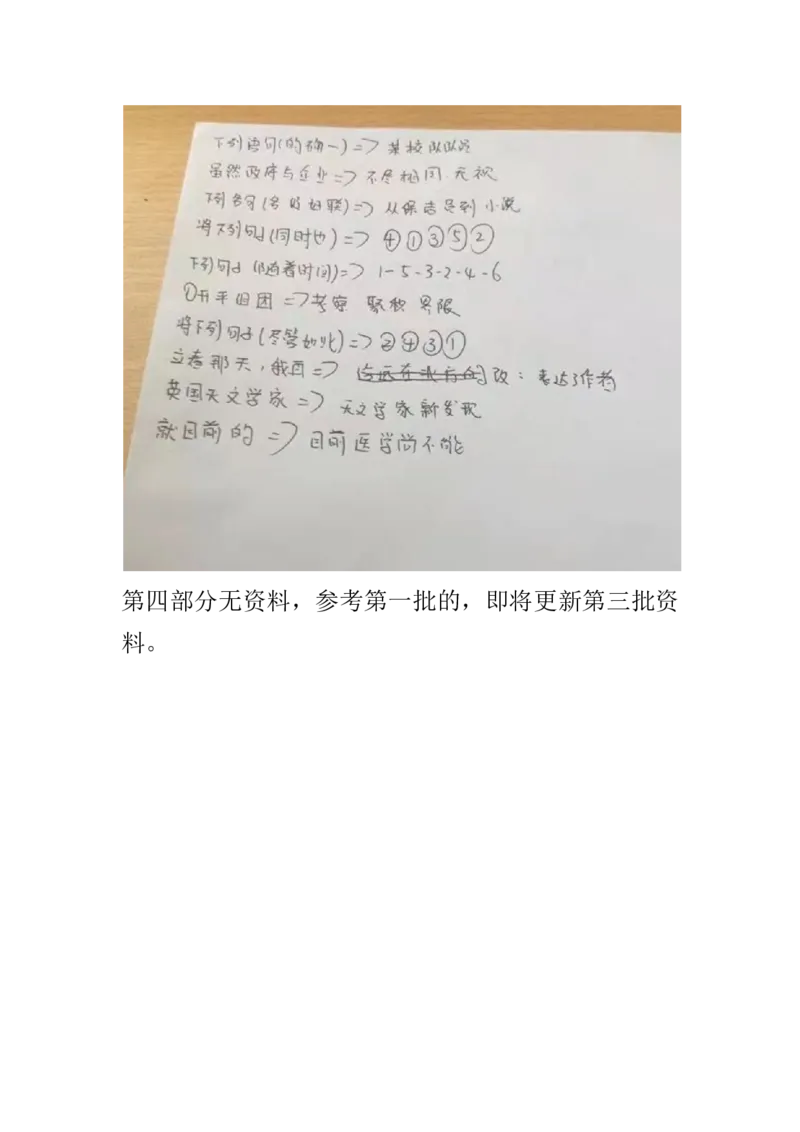 下列语句(的确一)=> 某校队队员
虽然政府与企业=> 不尽相同 无视
下列各句( )=> 从 到小说
将下列句子(同时也)=> ④①③⑤②
下列句子(随着时间)=> 1-5-3-2-4-6
①开平旧团 => 考察 聚积 界限
将下列句子(尽管如此)=> ②④③①
立春那天，我 => 改：表达了作者
英国天文学家 => 天文学家新发现
就目前的 => 目前医学尚不能
第四部分无资料，参考第一批的，即将更新第三批资
料。